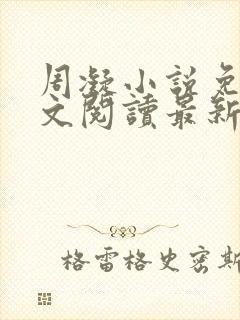 周凝小說免
文閱讀最新
格雷格史密斯